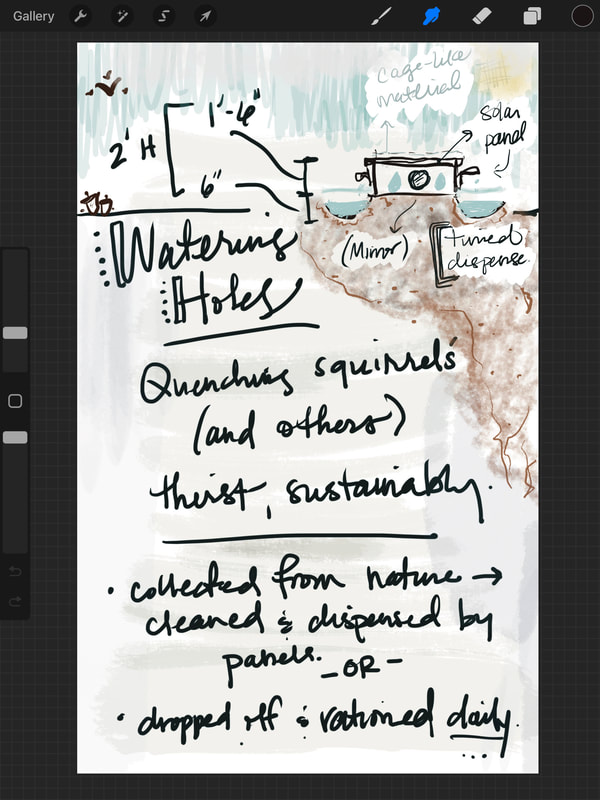 Gallery
cage-like
material
solar
panel
1'-6"
2' H
6"
(Mirror)
timed
dispense.
Watering
Holes
Quenching squirrels'
(and others)
thirst, sustainably.
• collected from nature →
cleaned & dispensed by
panels.
- OR -
• dropped off & rationed daily.
...